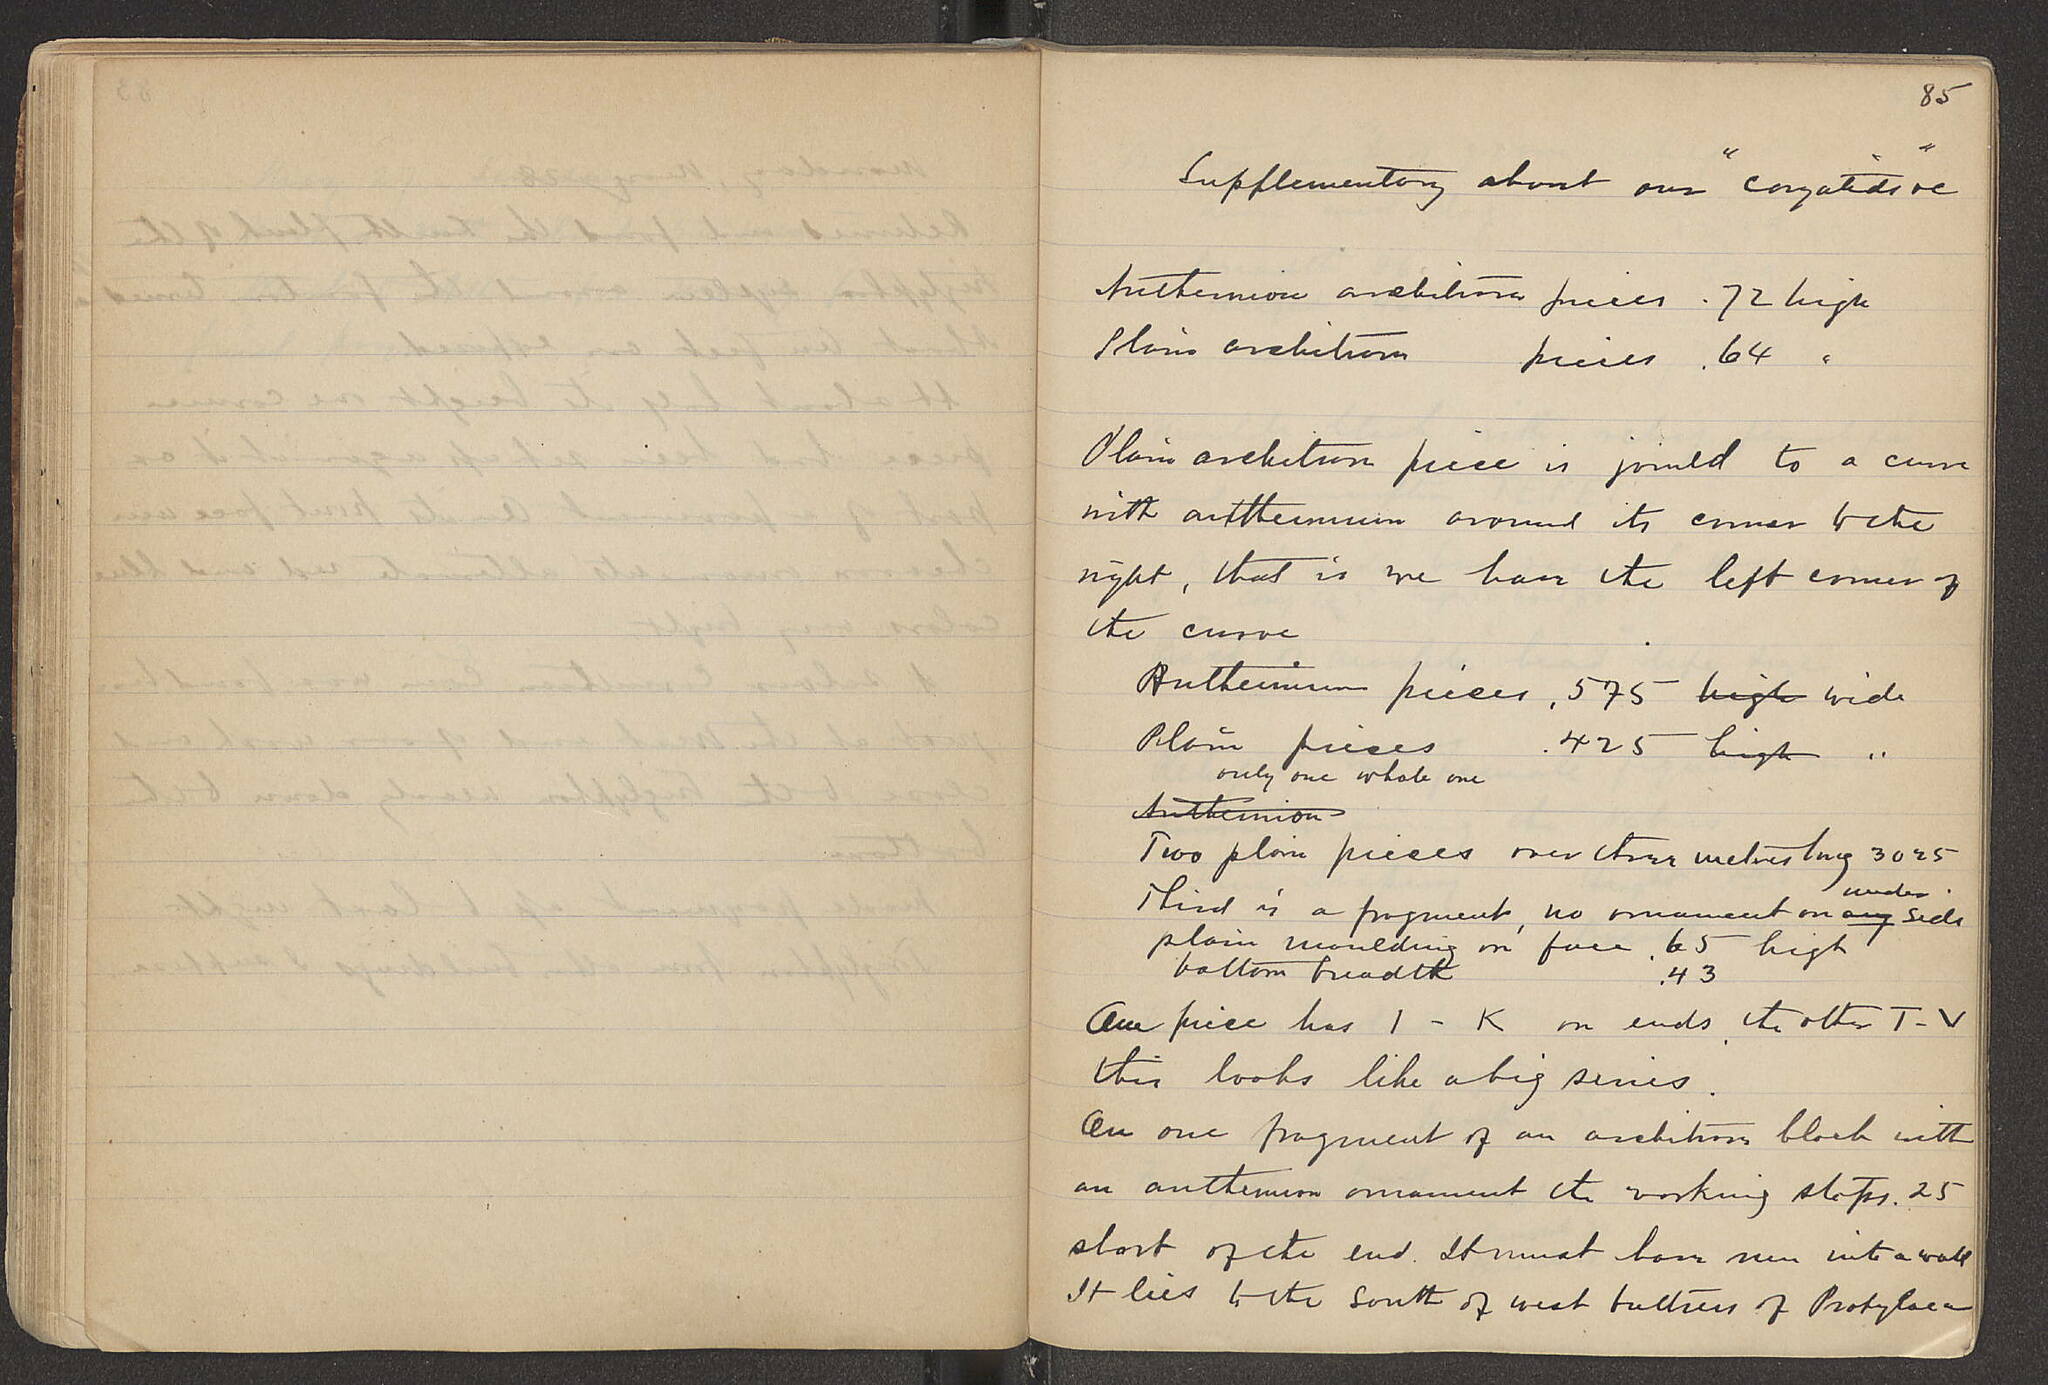 85
Supplementary about our "caryatids" etc
Anthemion architrave pieces .72 high
Plain architrave pieces .64 "
Plain architrave piece is joined to a curve
with anthemium around its corner to the
right, that is we have the left corner of
the curve
Anthemium pieces .575 high wide
Plain pieces .425 high "
only one whole one
Anthemion
Two plain pieces over three metres long 3025
under
Third is a fragment, no ornament on any side
plain moulding on face .65 high
bottom breadth .43
One piece has I - K on ends, the other T - V
this looks like a big series.
On one fragment of an architrave block with
an anthemion ornament the working stops .25
short of the end. It must have run into a wall
It lies to the South of west buttress of Propylaea